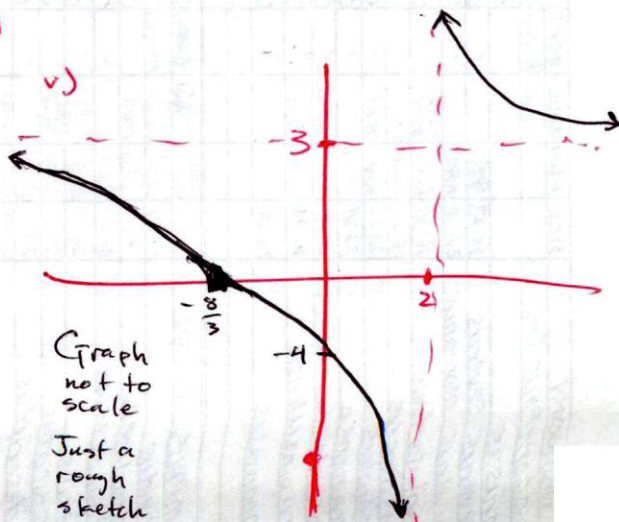 v)
3
2
- 8/3
-4
Graph
not to
scale
Just a
rough
sketch